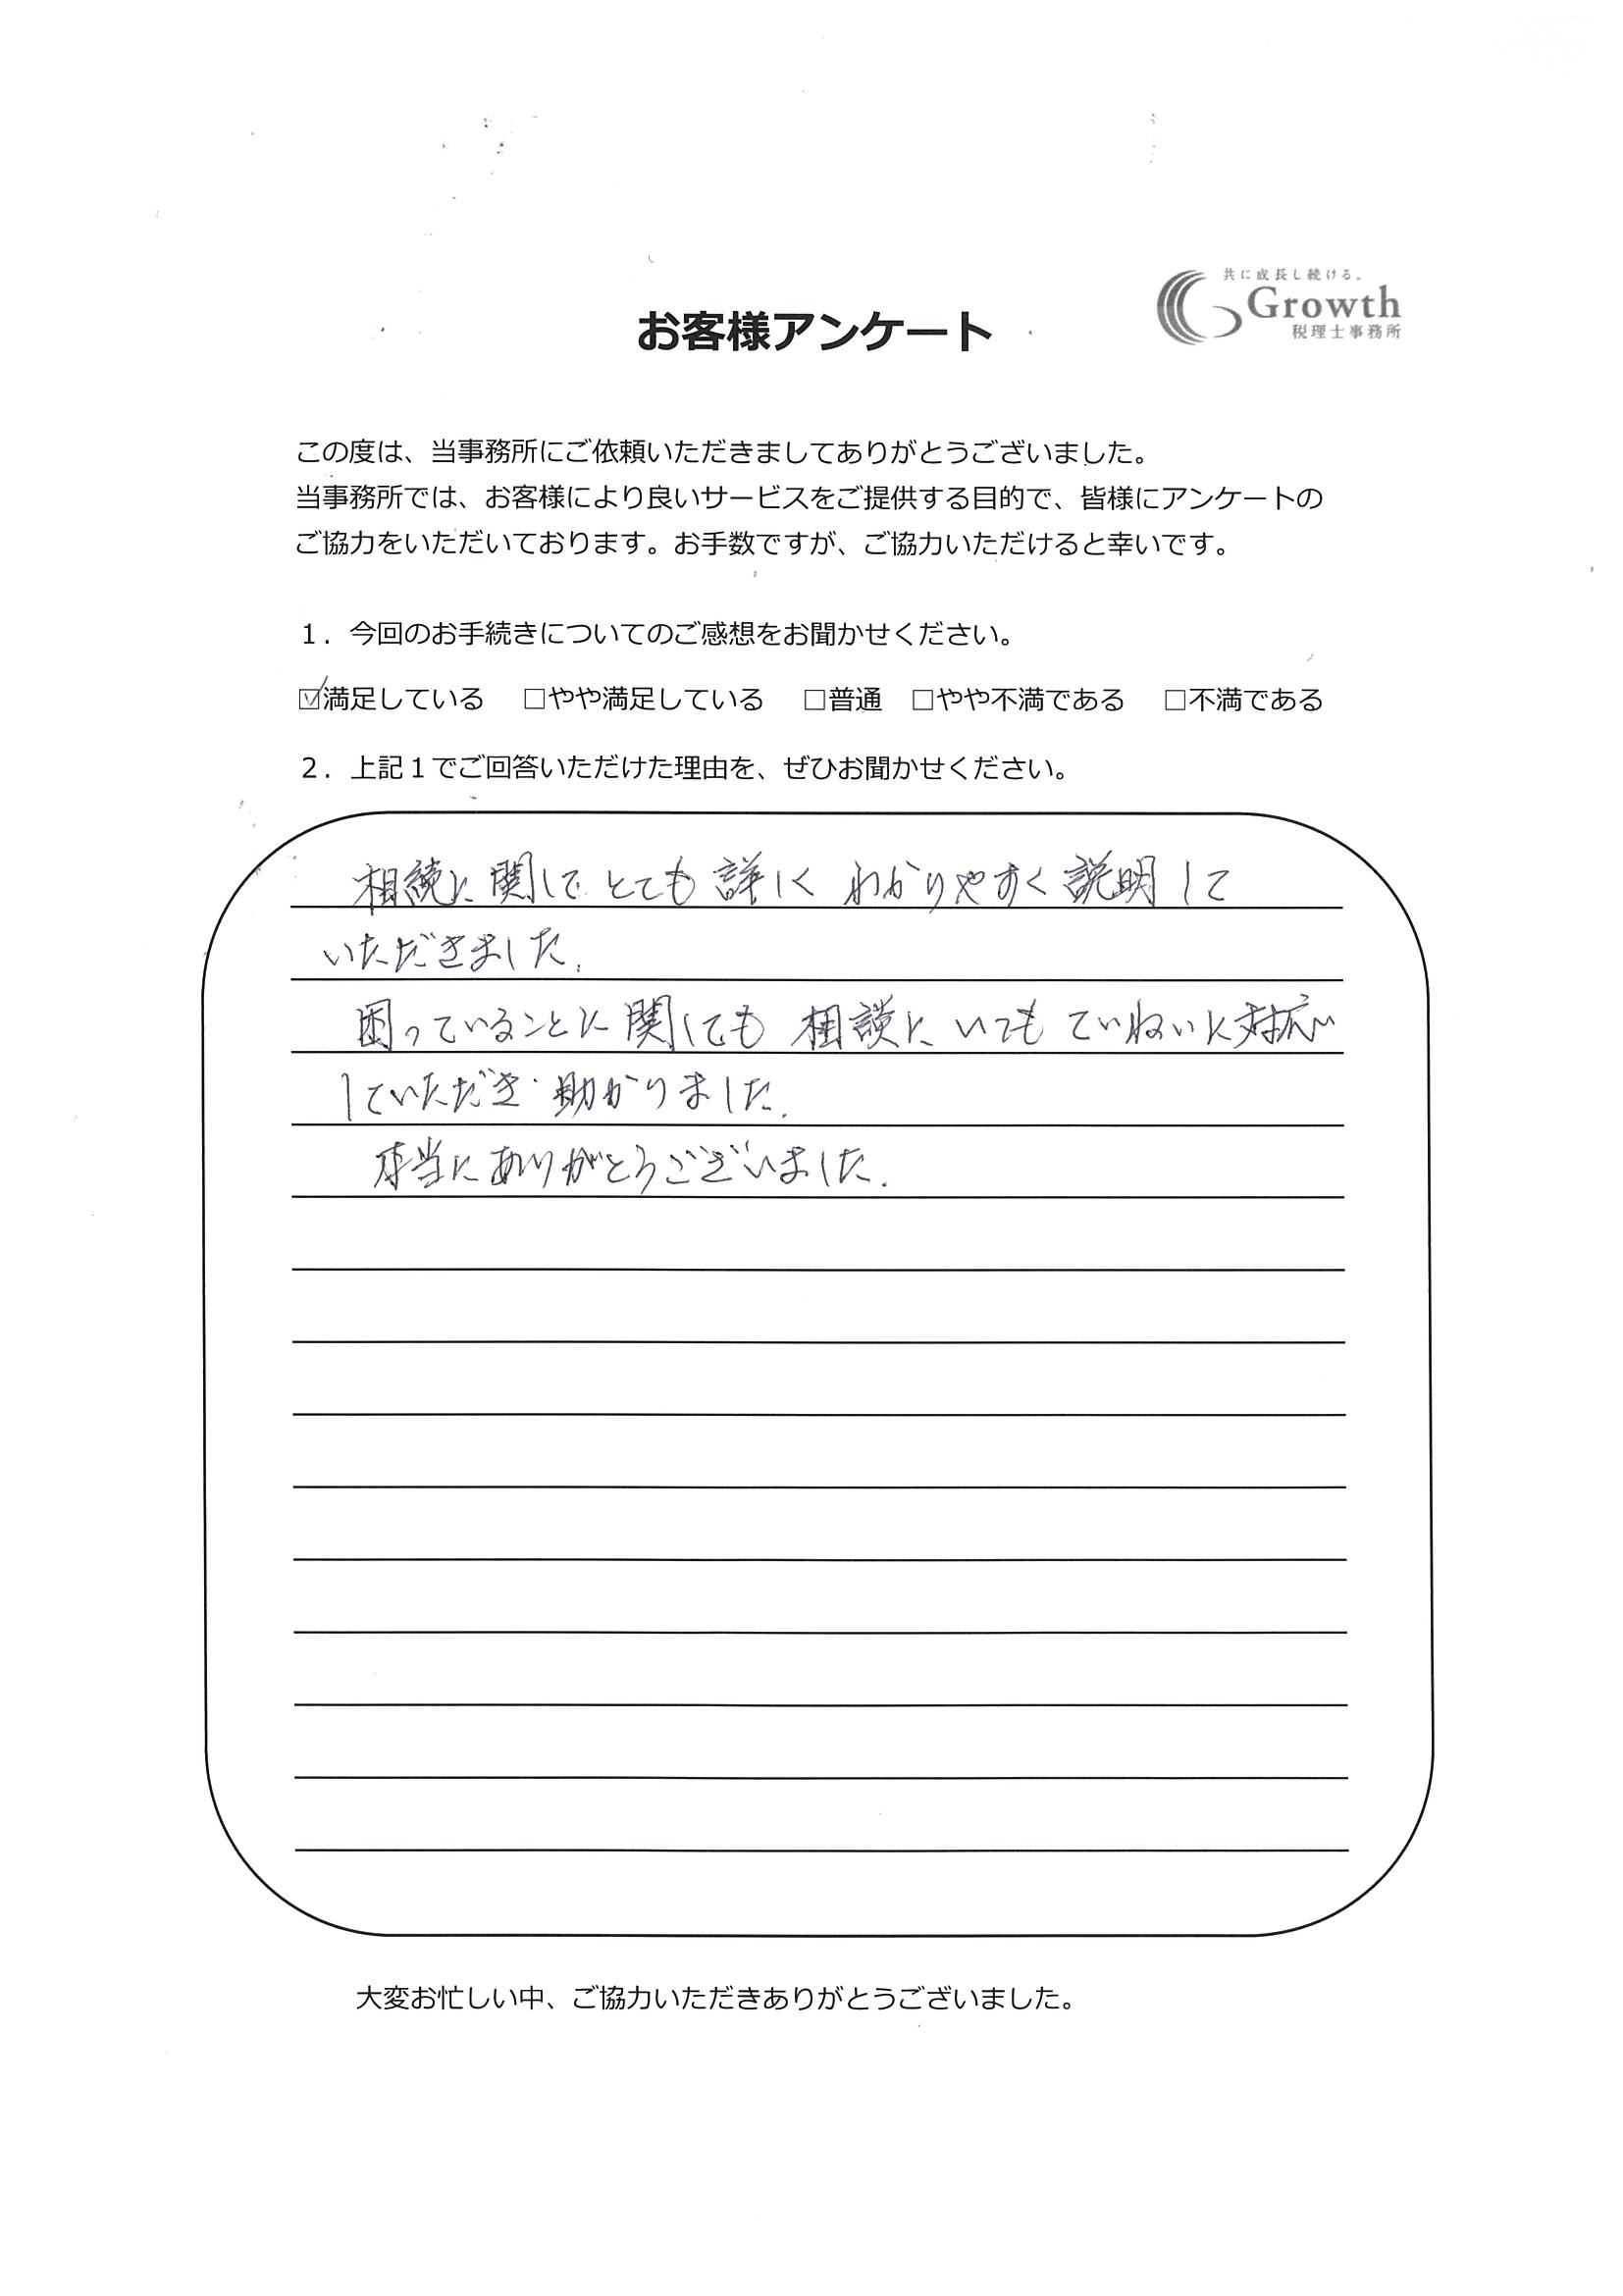 共に成長し続ける。
Growth
税理士事務所
お客様アンケート
この度は、当事務所にご依頼いただきましてありがとうございました。
当事務所では、お客様により良いサービスをご提供する目的で、皆様にアンケートの
ご協力をいただいております。お手数ですが、ご協力いただけると幸いです。
１．今回のお手続きについてのご感想をお聞かせください。
☑満足している　□やや満足している　□普通　□やや不満である　□不満である
２．上記１でご回答いただけた理由を、ぜひお聞かせください。
相続に関して とても 詳しく わかりやすく 説明して
いただきました.
困っていることに 関しても 相談に いても ていねいに対応
していただき 助かりました.
本当にありがとうございました.
大変お忙しい中、ご協力いただきありがとうございました。